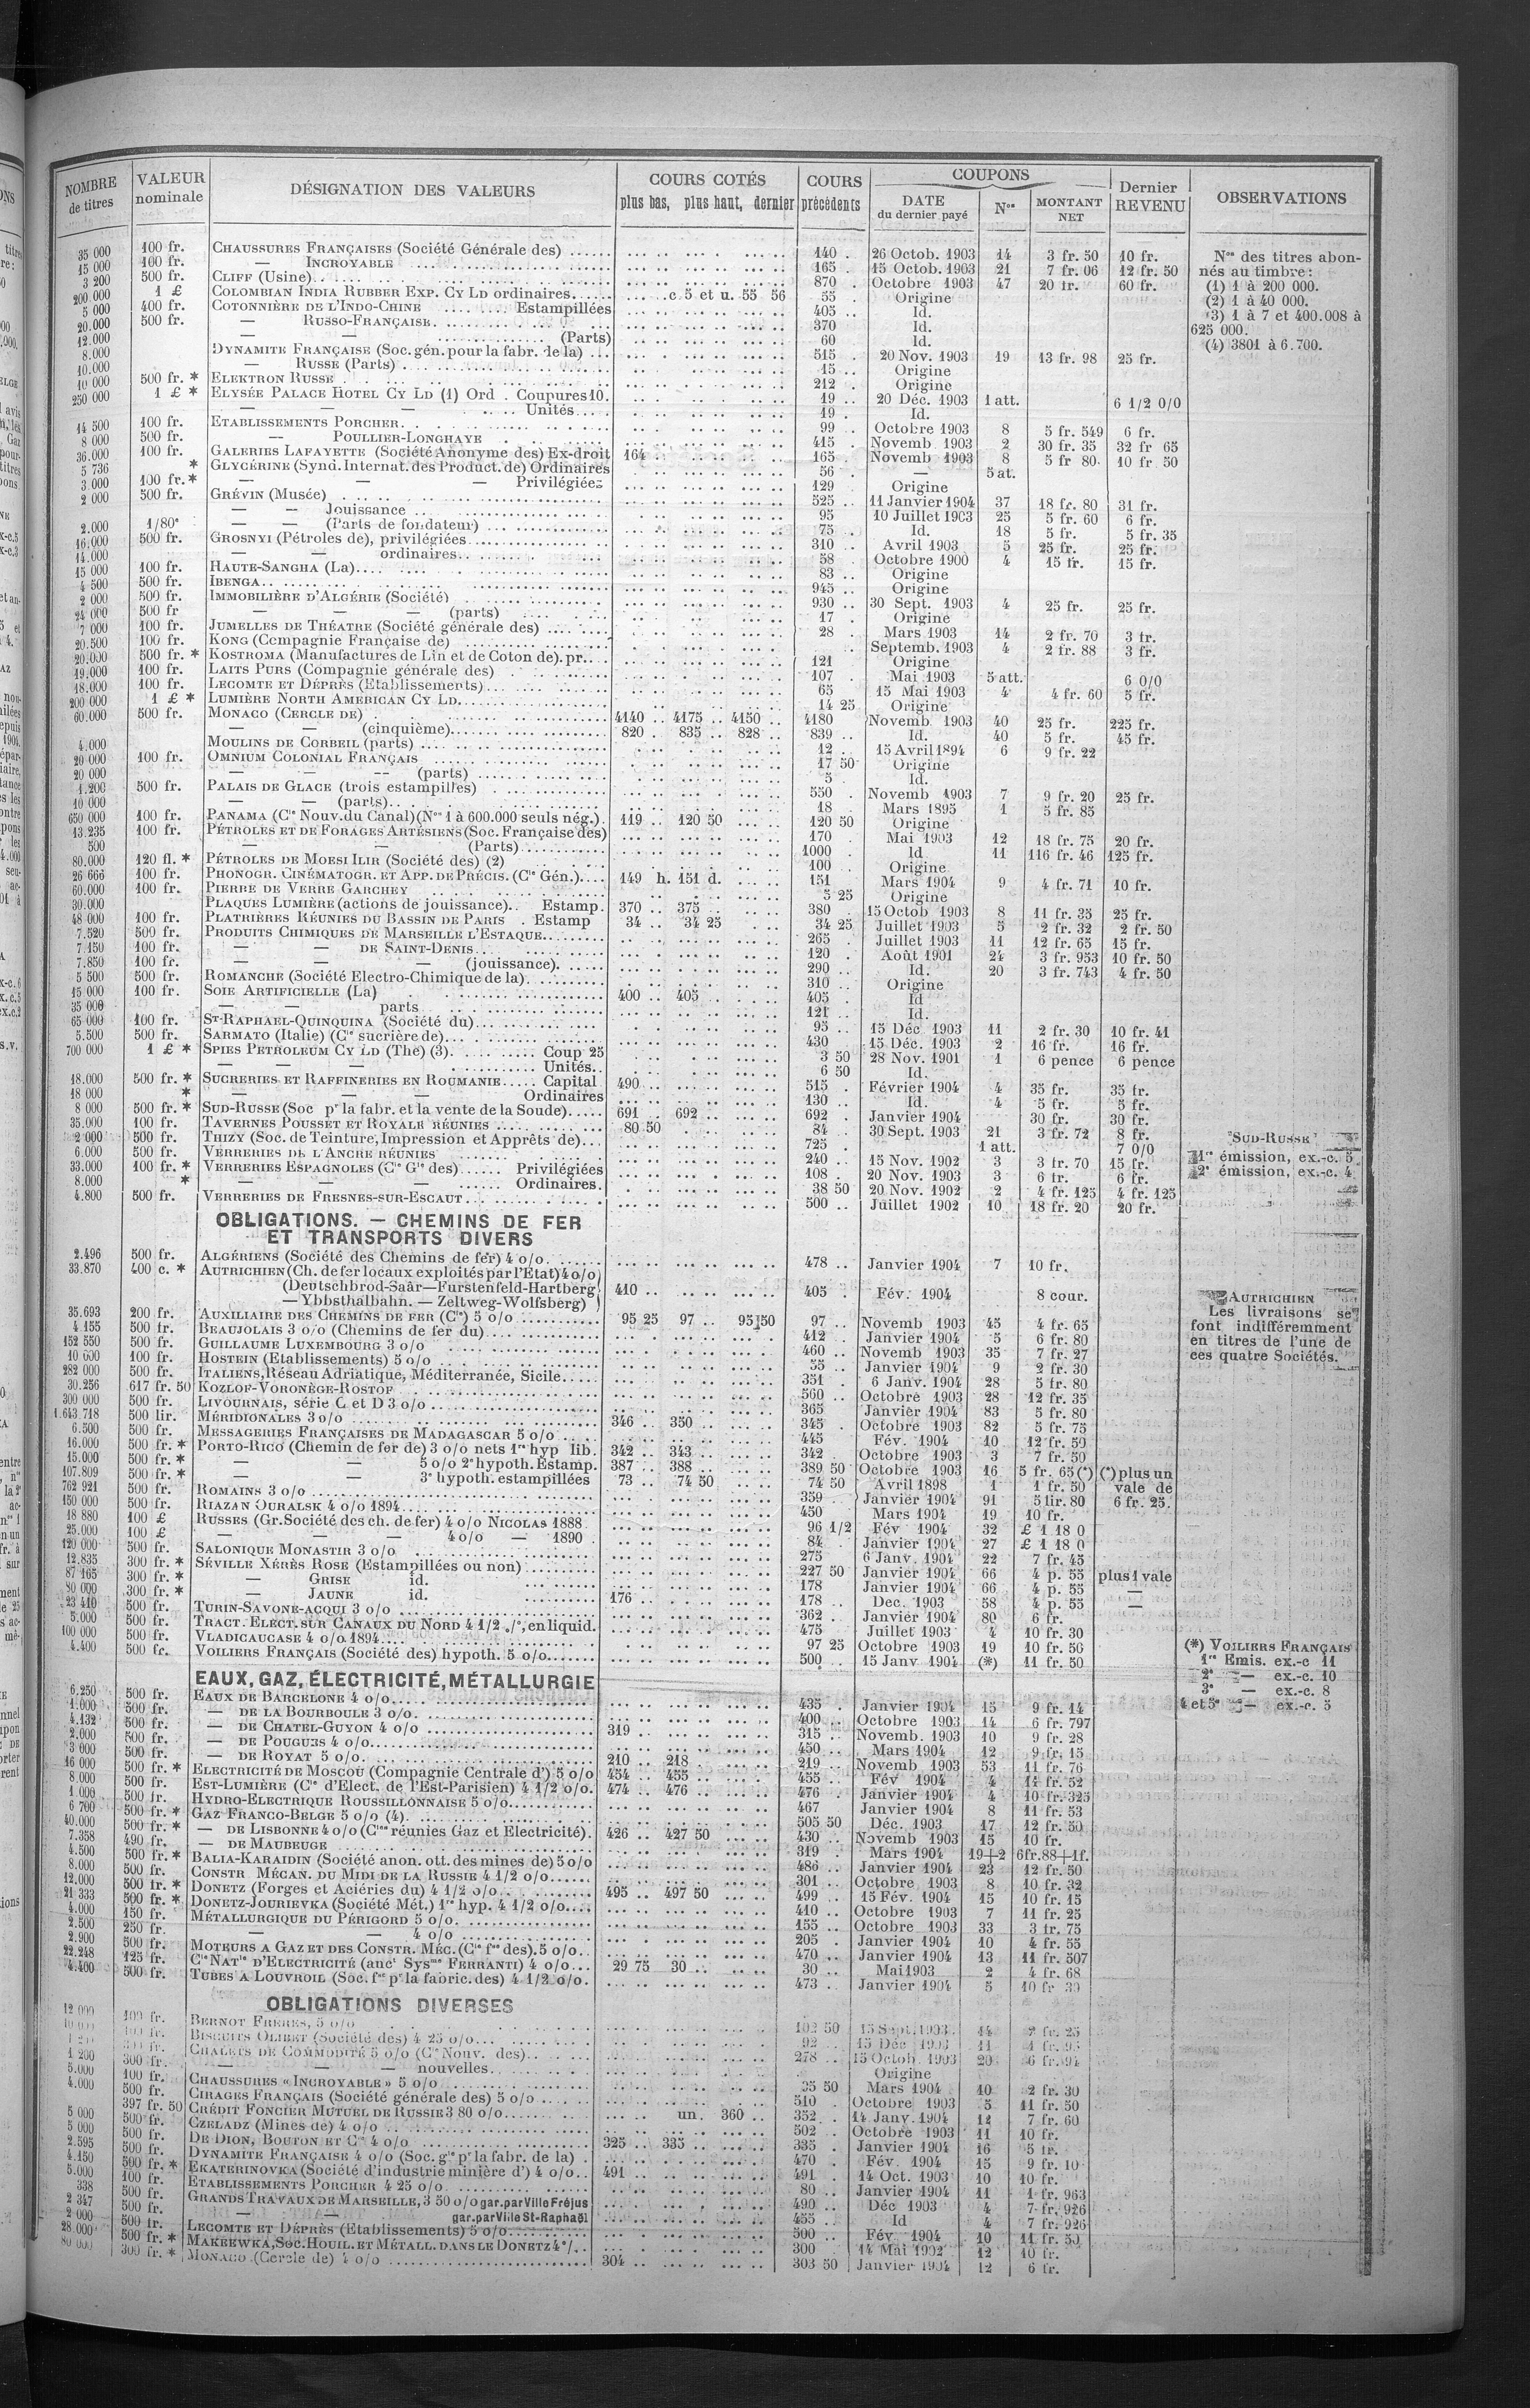 NOMBRE de titres | VALEUR nominale | DÉSIGNATION DES VALEURS | COURS COTÉS plus bas, plus haut, dernier | COURS précédents | COUPONS DATE du dernier payé | Nos | MONTANT NET | Dernier REVENU | OBSERVATIONS
35 000 | 100 fr. | CHAUSSURES FRANÇAISES (Société Générale des) | 140 | 26 Octob. 1903 | 14 | 3 fr. 50 | 10 fr. | Nos des titres abon-
15 000 | 100 fr. | — INCROYABLE | 165 | 15 Octob. 1903 | 21 | 7 fr. 06 | 12 fr. 50 | nés au timbre:
3 200 | 500 fr. | CLIFF (Usine) | 870 | Octobre 1903 | 47 | 20 fr. | 60 fr. | (1) 1 à 200 000.
200 000 | 1 £ | COLOMBIAN INDIA RUBBER EXP. CY LD ordinaires | c. 5 et u. 55 56 | 55 | Origine | (2) 1 à 40 000.
5 000 | 400 fr. | COTONNIÈRE DE L'INDO-CHINE Estampillées | 405 | Id. | (3) 1 à 7 et 400.008 à
20.000 | 500 fr. | — RUSSO-FRANÇAISE | 370 | Id. | 625 000.
12.000 | — — (Parts) | 60 | Id. | (4) 3801 à 6.700.
8.000 | DYNAMITE FRANÇAISE (Soc. gén. pour la fabr. de la) | 515 | 20 Nov. 1903 | 19 | 13 fr. 98 | 25 fr.
10.000 | — RUSSE (Parts) | 15 | Origine
10 000 | 500 fr. * | ELEKTRON RUSSE | 212 | Origine
250 000 | 1 £ * | ELYSÉE PALACE HOTEL CY LD (1) Ord. Coupures 10. | 19 | 20 Déc. 1903 | 1 att. | 6 1/2 0/0
— — — Unités | 19 | Id.
14 500 | 100 fr. | ETABLISSEMENTS PORCHER | 99 | Octobre 1903 | 8 | 5 fr. 549 | 6 fr.
8 000 | 500 fr. | — POULLIER-LONGHAYE | 415 | Novemb 1903 | 2 | 30 fr. 35 | 32 fr 65
36.000 | 100 fr. | GALERIES LAFAYETTE (Société Anonyme des) Ex-droit | 164 | 165 | Novemb 1903 | 8 | 5 fr 80 | 10 fr 50
5 736 | * | GLYCÉRINE (Synd. Internat. des Product. de) Ordinaires | 56 | — | 5 at.
3.000 | 100 fr. * | — — — Privilégiées | 129 | Origine
2 000 | 500 fr. | GRÉVIN (Musée) | 525 | 11 Janvier 1904 | 37 | 18 fr. 80 | 31 fr.
— — Jouissance | 95 | 10 Juillet 1903 | 25 | 5 fr. 60 | 6 fr.
2.000 | 1/80e | — — (Parts de fondateur) | 75 | Id. | 18 | 5 fr. | 5 fr. 35
16.000 | 500 fr. | GROSNYI (Pétroles de), privilégiées | 310 | Avril 1903 | 5 | 25 fr. | 25 fr.
14.000 | — — ordinaires | 58 | Octobre 1900 | 4 | 15 fr. | 15 fr.
15 000 | 100 fr. | HAUTE-SANGHA (La) | 83 | Origine
4 500 | 500 fr. | IBENGA | 945 | Origine
2 000 | 500 fr. | IMMOBILIÈRE D'ALGÉRIE (Société) | 930 | 30 Sept. 1903 | 4 | 25 fr. | 25 fr.
24 000 | 500 fr | — — — (parts) | 17 | Origine
7 000 | 100 fr. | JUMELLES DE THÉATRE (Société générale des) | 28 | Mars 1903 | 14 | 2 fr. 70 | 3 fr.
20.500 | 100 fr. | KONG (Compagnie Française de) | Septemb. 1903 | 4 | 2 fr. 88 | 3 fr.
20.000 | 500 fr. * | KOSTROMA (Manufactures de Lin et de Coton de). pr. | 121 | Origine
19.000 | 100 fr. | LAITS PURS (Compagnie générale des) | 107 | Mai 1903 | 5 att. | 6 0/0
18.000 | 100 fr. | LECOMTE ET DÉPRÈS (Etablissements) | 65 | 15 Mai 1903 | 4 | 4 fr. 60 | 5 fr.
200 000 | 1 £ * | LUMIÈRE NORTH AMERICAN CY LD | 14 25 | Origine
60.000 | 500 fr. | MONACO (CERCLE DE) | 4140 | 4175 | 4150 | 4180 | Novemb. 1903 | 40 | 25 fr. | 225 fr.
— — (cinquième) | 820 | 835 | 828 | 839 | Id. | 40 | 5 fr. | 45 fr.
4.000 | MOULINS DE CORBEIL (parts) | 12 | 15 Avril 1894 | 6 | 9 fr. 22
20 000 | 100 fr. | OMNIUM COLONIAL FRANÇAIS | 17 50 | Origine
20 000 | — — — (parts) | 5 | Id.
1.200 | 500 fr. | PALAIS DE GLACE (trois estampilles) | 550 | Novemb 1903 | 7 | 9 fr. 20 | 25 fr.
10 000 | — — (parts) | 18 | Mars 1895 | 1 | 5 fr. 85
650 000 | 100 fr. | PANAMA (Cie Nouv. du Canal) (Nos 1 à 600.000 seuls nég.) | 119 | 120 50 | 120 50 | Origine
13.235 | 100 fr. | PÉTROLES ET DE FORAGES ARTÉSIENS (Soc. Française des) | 170 | Mai 1903 | 12 | 18 fr. 75 | 20 fr.
500 | — — (Parts) | 1000 | Id. | 11 | 116 fr. 46 | 125 fr.
80.000 | 120 fl. * | PÉTROLES DE MOESI ILIR (Société des) (2) | 100 | Origine
26 666 | 100 fr. | PHONOGR. CINÉMATOGR. ET APP. DE PRÉCIS. (Cie Gén.) | 149 h. 151 d. | 151 | Mars 1904 | 9 | 4 fr. 71 | 10 fr.
60.000 | 100 fr. | PIERRE DE VERRE GARCHEY | 5 25 | Origine
30.000 | PLAQUES LUMIÈRE (actions de jouissance) Estamp. | 370 | 375 | 380 | 15 Octob 1903 | 8 | 11 fr. 35 | 25 fr.
48 000 | 100 fr. | PLATRIÈRES RÉUNIES DU BASSIN DE PARIS Estamp | 34 | 34 25 | 34 25 | Juillet 1903 | 5 | 2 fr. 32 | 2 fr. 50
7.520 | 500 fr. | PRODUITS CHIMIQUES DE MARSEILLE L'ESTAQUE | 265 | Juillet 1903 | 11 | 12 fr. 65 | 15 fr.
7 150 | 100 fr. | — — DE SAINT-DENIS | 120 | Août 1901 | 24 | 3 fr. 953 | 10 fr. 50
7.850 | 100 fr. | — — — (jouissance) | 290 | Id. | 20 | 3 fr. 743 | 4 fr. 50
5 500 | 500 fr. | ROMANCHE (Société Electro-Chimique de la) | 310 | Origine
15 000 | 100 fr. | SOIE ARTIFICIELLE (La) | 400 | 405 | 405 | Id
35 000 | — — parts | 121 | Id.
65 000 | 100 fr. | ST-RAPHAEL-QUINQUINA (Société du) | 95 | 15 Déc 1903 | 11 | 2 fr. 30 | 10 fr. 41
5.500 | 500 fr. | SARMATO (Italie) (Cie sucrière de) | 430 | 15 Déc. 1903 | 2 | 16 fr. | 16 fr.
700 000 | 1 £ * | SPIES PETROLEUM CY LD (The) (3) Coup 25 | 3 50 | 28 Nov. 1901 | 1 | 6 pence | 6 pence
— — — Unités | 6 50 | Id.
18.000 | 500 fr. * | SUCRERIES ET RAFFINERIES EN ROUMANIE Capital | 490 | 515 | Février 1904 | 4 | 35 fr. | 35 fr.
18 000 | * | — — — Ordinaires | 130 | Id. | 4 | 5 fr. | 5 fr.
8 000 | 500 fr. * | SUD-RUSSE (Soc pr la fabr. et la vente de la Soude) | 691 | 692 | 692 | Janvier 1904 | 30 fr. | 30 fr.
35.000 | 100 fr. | TAVERNES POUSSET ET ROYALE RÉUNIES | 80 50 | 84 | 30 Sept. 1903 | 21 | 3 fr. 72 | 8 fr.
2 000 | 500 fr. | THIZY (Soc. de Teinture, Impression et Apprêts de) | 725 | 1 att. | 7 0/0 | SUD-RUSSE
6.000 | 500 fr. | VERRERIES DE L'ANCRE RÉUNIES | 240 | 15 Nov. 1902 | 3 | 3 fr. 70 | 15 fr. | 1re émission, ex.-c. 5
33.000 | 100 fr. * | VERRERIES ESPAGNOLES (Cie Gle des) Privilégiées | 108 | 20 Nov. 1903 | 3 | 6 fr. | 6 fr. | 2e émission, ex.-c. 4
8.000 | * | — — — Ordinaires | 38 50 | 20 Nov. 1902 | 2 | 4 fr. 125 | 4 fr. 125
4.800 | 500 fr. | VERRERIES DE FRESNES-SUR-ESCAUT | 500 | Juillet 1902 | 10 | 18 fr. 20 | 20 fr.
OBLIGATIONS. — CHEMINS DE FER
ET TRANSPORTS DIVERS
2.496 | 500 fr. | ALGÉRIENS (Société des Chemins de fer) 4 o/o | 478 | Janvier 1904 | 7 | 10 fr.
33.870 | 400 c. * | AUTRICHIEN (Ch. de fer locaux exploités par l'Etat) 4 o/o
(Deutschbrod-Saâr—Furstenfeld-Hartberg | 410 | 405 | Fév. 1904 | 8 cour. | AUTRICHIEN
— Ybbsthalbahn. — Zeltweg-Wolfsberg) | Les livraisons se
35.693 | 200 fr. | AUXILIAIRE DES CHEMINS DE FER (Cie) 5 o/o | 95 25 | 97 | 95 50 | 97 | Novemb 1903 | 45 | 4 fr. 65 | font indifféremment
4 155 | 500 fr. | BEAUJOLAIS 3 o/o (Chemins de fer du) | 412 | Janvier 1904 | 5 | 6 fr. 80 | en titres de l'une de
152 550 | 500 fr. | GUILLAUME LUXEMBOURG 3 o/o | 460 | Novemb 1903 | 35 | 7 fr. 27 | ces quatre Sociétés.
10 000 | 100 fr. | HOSTEIN (Etablissements) 5 o/o | 55 | Janvier 1904 | 9 | 2 fr. 30
282 000 | 500 fr. | ITALIENS, Réseau Adriatique, Méditerranée, Sicile | 351 | 6 Janv. 1904 | 28 | 5 fr. 80
30.256 | 617 fr. 50 | KOZLOF-VORONÈGE-ROSTOF | 560 | Octobre 1903 | 28 | 12 fr. 35
300 000 | 500 fr. | LIVOURNAIS, série C et D 3 o/o | 365 | Janvier 1904 | 83 | 5 fr. 80
1.643.718 | 500 lir. | MÉRIDIONALES 3 o/o | 346 | 350 | 345 | Octobre 1903 | 82 | 5 fr. 75
6.500 | 500 fr. | MESSAGERIES FRANÇAISES DE MADAGASCAR 5 o/o | 445 | Fév. 1904 | 10 | 12 fr. 50
16.000 | 500 fr. * | PORTO-RICO (Chemin de fer de) 3 o/o nets 1re hyp lib. | 342 | 343 | 342 | Octobre 1903 | 3 | 7 fr. 50
15.000 | 500 fr. * | — — 5 o/o 2e hypoth. Estamp. | 387 | 388 | 389 50 | Octobre 1903 | 16 | 5 fr. 65 (*) | (*) plus un
107.809 | 500 fr. * | — — 3e hypoth. estampillées | 73 | 74 50 | 74 50 | Avril 1898 | 1 | 1 fr. 50 | vale de
762 921 | 500 fr. | ROMAINS 3 o/o | 359 | Janvier 1904 | 91 | 5 lir. 80 | 6 fr. 25.
150 000 | 500 fr. | RIAZAN OURALSK 4 o/o 1894 | 450 | Mars 1904 | 19 | 10 fr.
18 880 | 100 £ | RUSSES (Gr. Société des ch. de fer) 4 o/o NICOLAS 1888 | 96 1/2 | Fév 1904 | 32 | £ 1 18 0
25.000 | 100 £ | — — — 4 o/o — 1890 | 84 | Janvier 1904 | 27 | £ 1 18 0
120 000 | 500 fr. | SALONIQUE MONASTIR 3 o/o | 275 | 6 Janv. 1904 | 22 | 7 fr. 45
12.835 | 300 fr. * | SÉVILLE XÉRÈS ROSE (Estampillées ou non) | 227 50 | Janvier 1904 | 66 | 4 p. 55 | plus 1 vale
87 165 | 300 fr. * | — GRISE id. | 178 | Janvier 1904 | 66 | 4 p. 55 | —
80 000 | 300 fr. * | — JAUNE id. | 176 | 178 | Dec. 1903 | 58 | 4 p. 55 | —
23 410 | 500 fr. | TURIN-SAVONE-ACQUI 3 o/o | 362 | Janvier 1904 | 80 | 6 fr.
5.000 | 500 fr. | TRACT. ELECT. SUR CANAUX DU NORD 4 1/2 o/o, en liquid. | 475 | Juillet 1903 | 4 | 10 fr. 30
100 000 | 500 fr. | VLADICAUCASE 4 o/o 1894 | 97 25 | Octobre 1903 | 19 | 10 fr. 50 | (*) VOILIERS FRANÇAIS
4.400 | 500 fr. | VOILIERS FRANÇAIS (Société des) hypoth. 5 o/o | 500 | 15 Janv 1904 | (*) | 11 fr. 50 | 1re Emis. ex.-c 11
EAUX, GAZ, ÉLECTRICITÉ, MÉTALLURGIE | 2e — ex.-c. 10
3e — ex.-c. 8
6.250 | 500 fr. | EAUX DE BARCELONE 4 o/o | 435 | Janvier 1904 | 15 | 9 fr. 14 | 4 et 5e — ex.-c. 5
1.000 | 500 fr. | — DE LA BOURBOULE 3 o/o | 400 | Octobre 1903 | 14 | 6 fr. 797
4.132 | 500 fr. | — DE CHATEL-GUYON 4 o/o | 319 | 315 | Novemb. 1903 | 10 | 9 fr. 28
2.000 | 500 fr. | — DE POUGUES 4 o/o | 450 | Mars 1904 | 12 | 9 fr. 15
3 000 | 500 fr. | — DE ROYAT 5 o/o | 210 | 218 | 219 | Novemb 1903 | 53 | 11 fr. 76
16 000 | 500 fr. * | ELECTRICITÉ DE MOSCOU (Compagnie Centrale d') 5 o/o | 454 | 455 | 455 | Fév 1904 | 4 | 11 fr. 52
8.000 | 500 fr. | EST-LUMIÈRE (Cie d'Elect. de l'Est-Parisien) 4 1/2 o/o. | 474 | 476 | 476 | Janvier 1904 | 4 | 10 fr. 325
1.000 | 500 fr. | HYDRO-ELECTRIQUE ROUSSILLONNAISE 5 o/o | 467 | Janvier 1904 | 8 | 11 fr. 53
6 700 | 500 fr. * | GAZ FRANCO-BELGE 5 o/o (4) | 505 50 | Déc. 1903 | 17 | 12 fr. 50
40.000 | 500 fr. * | — DE LISBONNE 4 o/o (Cies réunies Gaz et Electricité) | 426 | 427 50 | 430 | Novemb 1903 | 15 | 10 fr.
7.358 | 490 fr. | — DE MAUBEUGE | 319 | Mars 1904 | 19+2 | 6fr.88+1f.
4.500 | 500 fr. * | BALIA-KARAIDIN (Société anon. ott. des mines de) 5 o/o | 486 | Janvier 1904 | 23 | 12 fr. 50
8.000 | 500 fr. | CONSTR MÉCAN. DU MIDI DE LA RUSSIE 4 1/2 o/o | 301 | Octobre 1903 | 8 | 10 fr. 32
12.000 | 500 fr. * | DONETZ (Forges et Aciéries du) 4 1/2 o/o | 495 | 497 50 | 499 | 15 Fév. 1904 | 15 | 10 fr. 15
21 333 | 500 fr. * | DONETZ-JOURIEVKA (Société Mét.) 1re hyp. 4 1/2 o/o | 410 | Octobre 1903 | 7 | 11 fr. 25
4.000 | 150 fr. | MÉTALLURGIQUE DU PÉRIGORD 5 o/o | 155 | Octobre 1903 | 33 | 3 fr. 75
2.500 | 250 fr. | — — 4 o/o | 205 | Janvier 1904 | 10 | 4 fr. 55
2.900 | 500 fr. | MOTEURS A GAZ ET DES CONSTR. MÉC. (Cie fse des). 5 o/o | 470 | Janvier 1904 | 13 | 11 fr. 507
22.248 | 125 fr. | Cie NATle D'ELECTRICITÉ (anct Sysme FERRANTI) 4 o/o | 29 75 | 30 | 30 | Mai 1903 | 2 | 4 fr. 68
4.400 | 500 fr. | TUBES A LOUVROIL (Soc. fse pr la fabric. des) 4 1/2 o/o. | 473 | Janvier 1904 | 5 | 10 fr 30
OBLIGATIONS DIVERSES
12 000 | 100 fr. | BERNOT FRÈRES, 5 o/o | 102 50 | 15 Sept. 1903 | 14 | 2 fr. 25
BISCUITS OLIBET (Société des) 4 25 o/o | 92 | 15 Déc 1903 | 11
CHALETS DE COMMODITÉ 5 o/o (Cie Nouv. des) | 278 | 15 Octob. 1903 | 20 | 6 fr. 94
1 200 | 300 fr. | — — — nouvelles | Origine
5.000 | 100 fr. | CHAUSSURES « INCROYABLE » 5 o/o | 35 50 | Mars 1904 | 10 | 2 fr. 30
4.000 | 500 fr. | CIRAGES FRANÇAIS (Société générale des) 5 o/o | 510 | Octobre 1903 | 5 | 11 fr. 50
397 fr. 50 | CRÉDIT FONCIER MUTUEL DE RUSSIE 3 80 o/o | un. 360 | 352 | 14 Janv. 1904 | 12 | 7 fr. 60
5 000 | 500 fr. | CZELADZ (Mines de) 4 o/o | 502 | Octobre 1903 | 11 | 10 fr.
5 000 | 500 fr. | DE DION, BOUTON ET Cie 4 o/o | 325 | 335 | 335 | Janvier 1904 | 16 | 5 fr.
2.595 | 500 fr. | DYNAMITE FRANÇAISE 4 o/o (Soc. gle pr la fabr. de la) | 470 | Fév. 1904 | 15 | 9 fr. 10
4.150 | 500 fr. * | EKATERINOVKA (Société d'industrie minière d') 4 o/o | 491 | 491 | 14 Oct. 1903 | 10 | 10 fr.
5.000 | 100 fr. | ETABLISSEMENTS PORCHER 4 25 o/o | 80 | Janvier 1904 | 11 | 1 fr. 963
338 | 500 fr. | GRANDS TRAVAUX DE MARSEILLE, 3 50 o/o gar. par Ville Fréjus | 490 | Déc 1903 | 4 | 7 fr. 926
2 347 | 500 fr. | — — gar. par Ville St-Raphaël | 455 | Id | 4 | 7 fr. 926
2 000 | 500 fr. | LECOMTE ET DÉPRÈS (Etablissements) 5 o/o | 500 | Fév 1904 | 10 | 11 fr. 50
28 000 | 500 fr. * | MAKEEWKA, Soc. HOUIL. ET MÉTALL. DANS LE DONETZ 4 o/o | 300 | 14 Mai 1902 | 12 | 10 fr.
80 000 | 300 fr. * | MONACO (Cercle de) 4 o/o | 304 | 303 50 | Janvier 1904 | 12 | 6 fr.